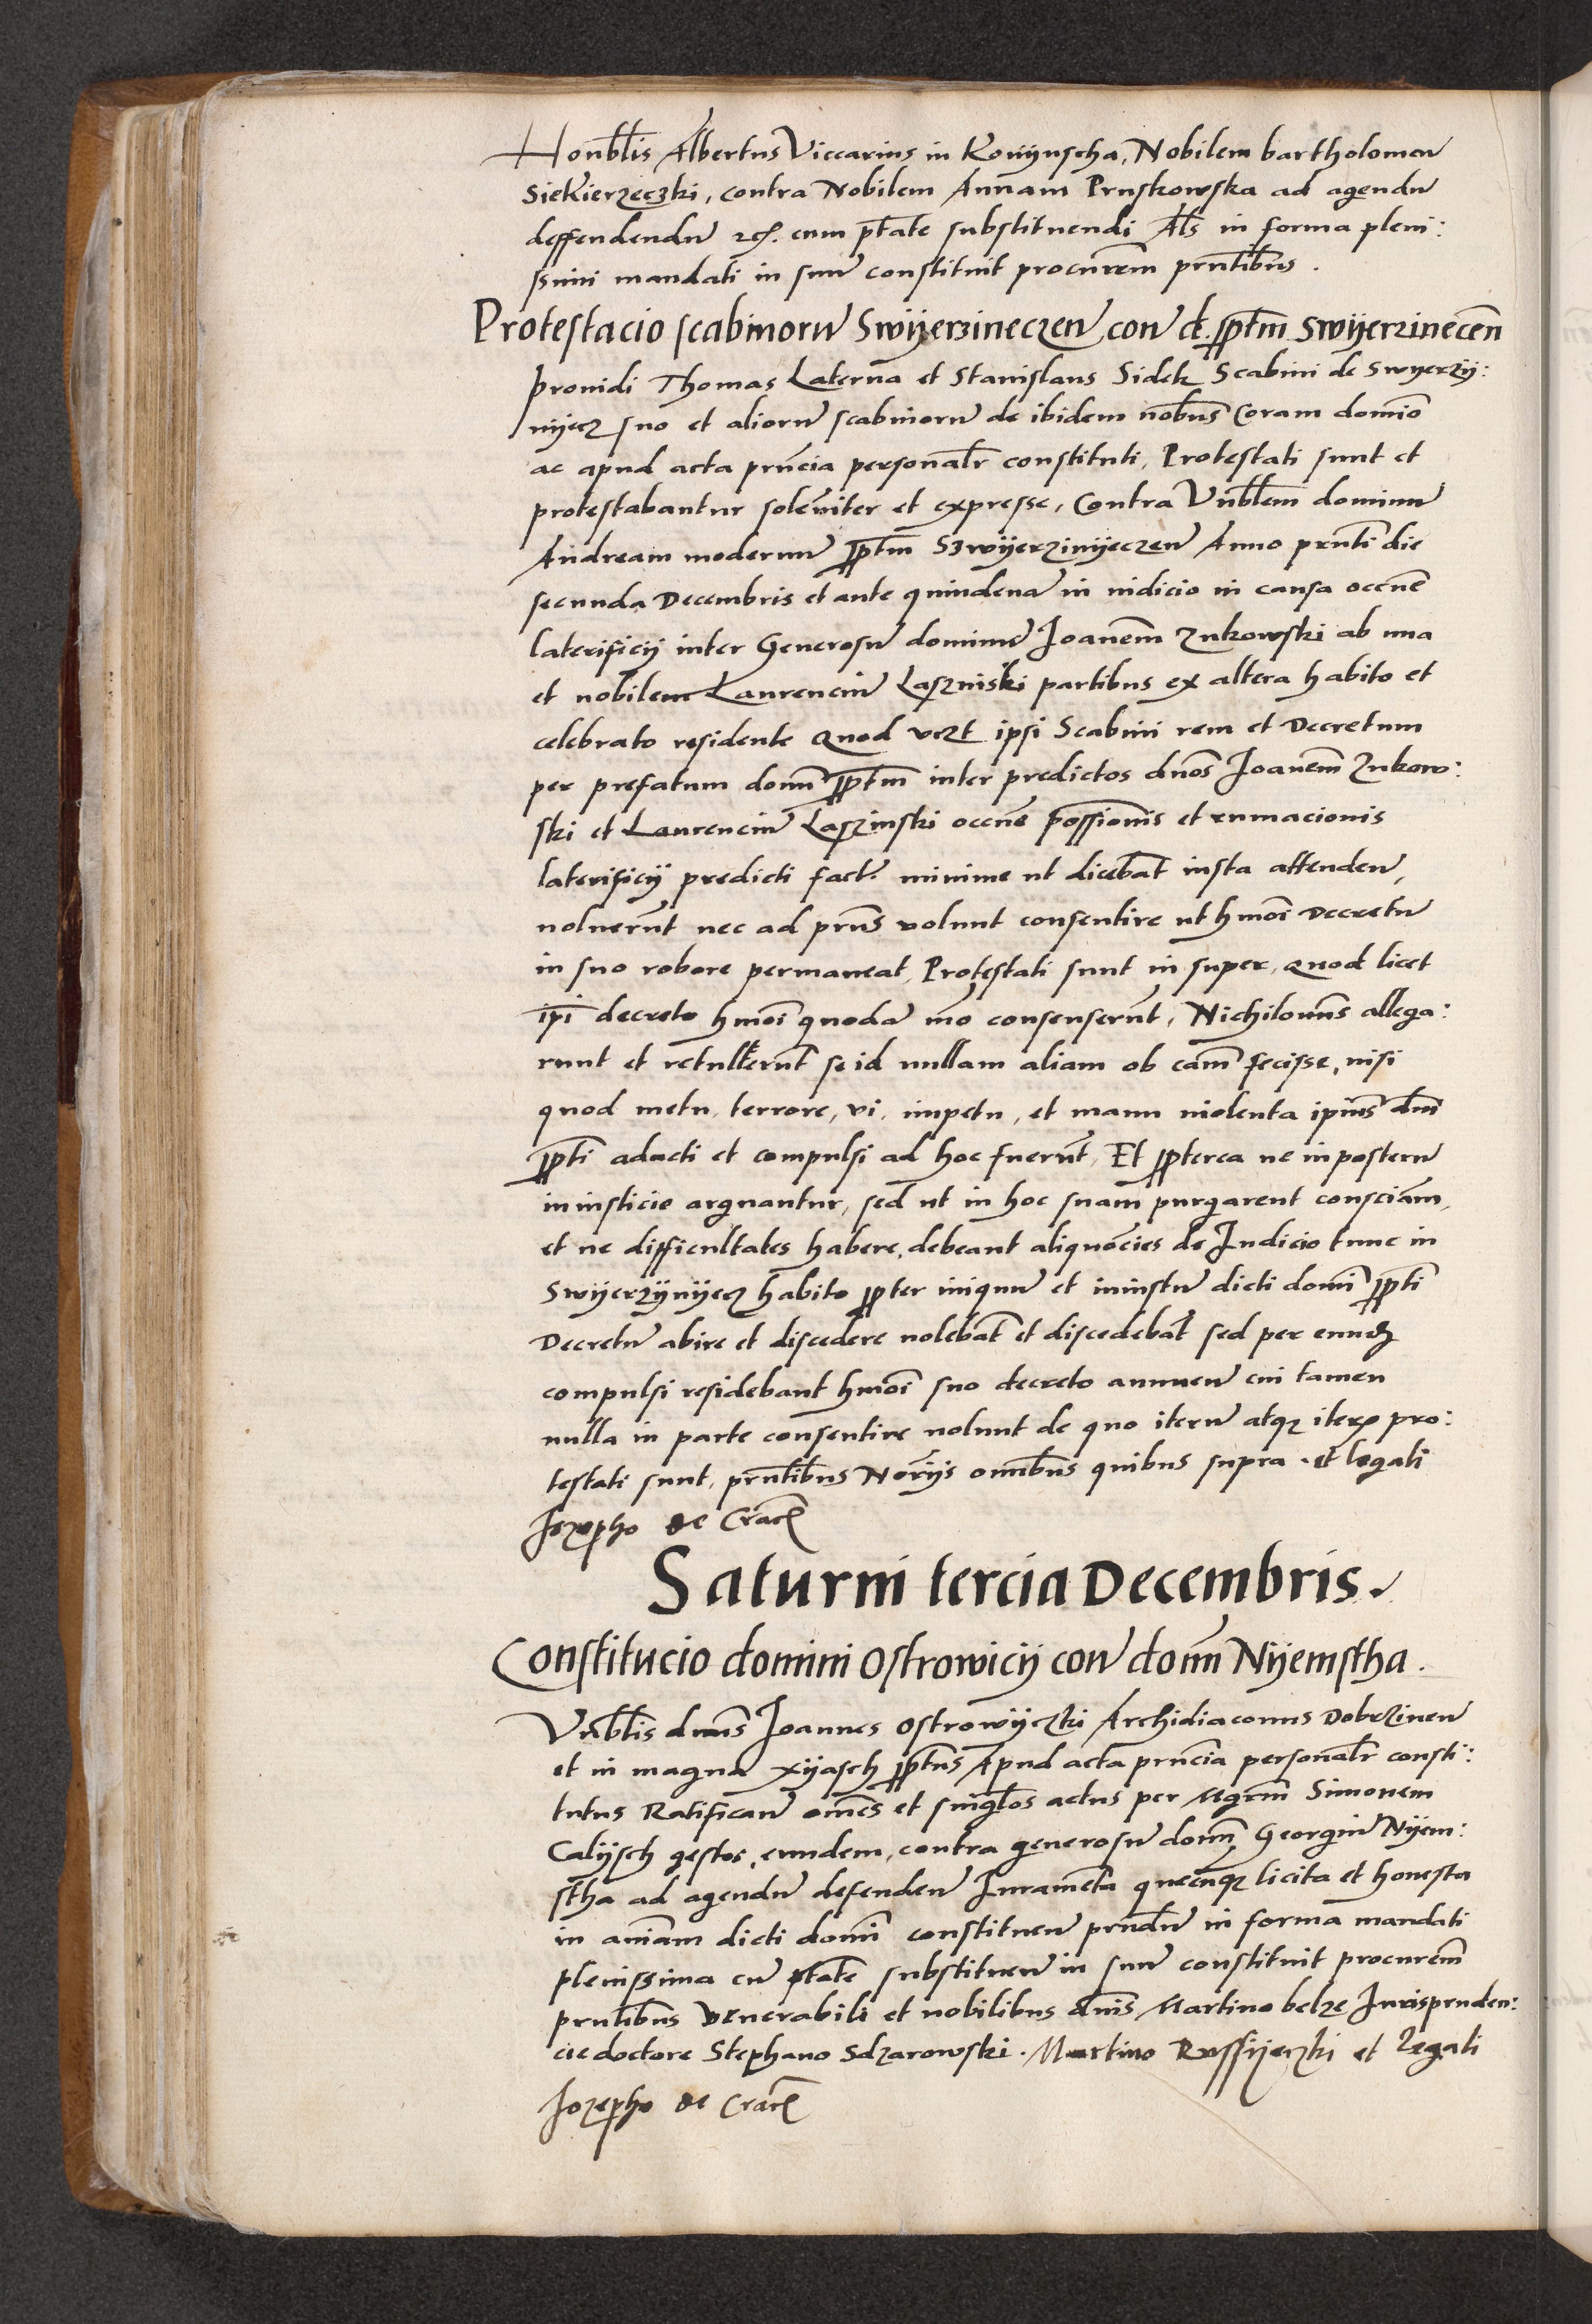 Honblis Albertus Viccarius in Konynscha, Nobilem bartholomeu
Siekierzeczki, contra Nobilem Annam Pruskowska ad agendu
deffendendu etc. cum ptate substituendi Als in forma pleni:
ssimi mandati in suu constituit procurem prntibus.
Protestacio scabinoru Swyerzineczen con d. ppptm Swyerzinecen
Prouidi Thomas Laterna et Stanislaus Sidek Scabini de Swyerzy:
nyecz suo et alioru scabinoru de ibidem noibus Coram domio
ac apud acta prncia personalr constituti, Protestati sunt et
protestabantur soleniter et expresse, Contra Vnblem dominu
Andream modernu pptm Szwyerzinyeczen Anno prnti die
secunda Decembris et ante quindena in iudicio in causa occne
laterificij inter Generosu dominu Joanem Zukowski ab una
et nobilem Laurenciu Laszniski partibus ex altera habito et
celebrato residente Quod vczt ipsi Scabini rem et Decretum
per prefatum domu pptm inter predictos dnos Joanem Zukow:
ski et Laurenciu Laszinski occne possionis et rumacionis
laterificij predicti fact minime ut dicebat iusta attenden,
noluerut nec ad prns volunt consentire ut hmoi Decretu
in suo robore permaneat, Protestati sunt in super, Quod licet
ipi decreto hmoi quoda mo consenserut, Nichilomns allega:
runt et retullerut se id nullam aliam ob cam fecisse, nisi
quod metu, terrore, vi, impetu, et manu uiolenta ipius dni
ppti adacti et compulsi ad hoc fuerut, Et ppterea ne inposteru
iniusticie arguantur, sed ut in hoc suam purgarent consciam,
et ne difficultates habere, debeant aliquocies de Iudicio tunc in
Swyerzynyecz habito ppter iniquu et iniustu dicti domi ppti
Decretu abire et discedere nolebat et discedebat sed per eundz
compulsi residebant hmoi suo decreto annuen cui tamen
nulla in parte consentire nolunt de quo iteru atqz iteru pro:
testati sunt, prntibus Noryis omibus quibus supra. et legali
Jozepho de Crac
Saturni tercia Decembris.
Constitucio domini Ostrowicij con domu Nyemstha.
Vnblis dnus Joannes Ostrowyczki Archidiaconus Dobrzinen
et in magna xyasch pptus Apud acta prncia personalr consti:
tutus Ratifican omes et singlos actus per Mgrm Simonem
Calysch gestos, eundem, contra generosu domu Georgiu Nyem:
stha ad agendu defenden Iurameta quecuqz licita et honesta
in aniam dicti domi constituen prndu in forma mandati
plenissima cu ptate substituen in suu constituit procurem
prntibus venerabili et nobilibus dnis Martino belze Iurispruden:
cie doctore Stephano Sdzarowski. Martino Russyeczki et legali
Jozepho de Crac